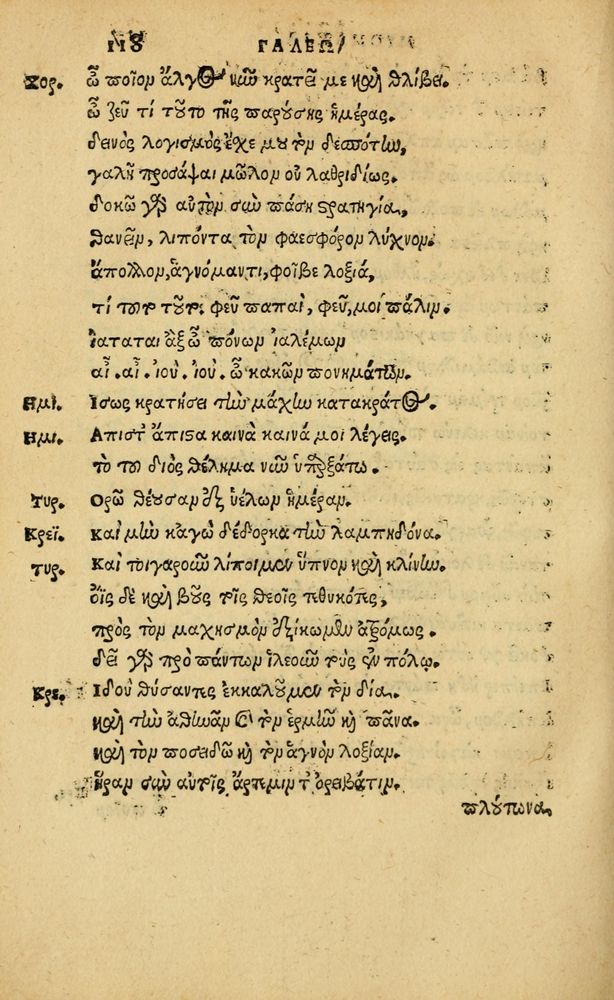 ΓΑΛΕΩ
Χορ. ὦ ποῖον ἄλγος νῶϊν κρατεῖ με καὶ θλίβει.
ὦ ζεῦ τί τοῦτο τῆς παρούσης ἡμέρας.
δεινὸς λογισμὸς ἔχει μου τὸν δεσπότην,
γαλῆ προσάψαι μῶλον οὐ λαθριδίως.
δοκῶ γὰρ αὐτὸν σὺν πάσῃ στρατηγίᾳ,
θανεῖν, λιπόντα τὸν φαεσφόρον λύχνον.
ἄπολλον, ἁγνόμαντι, φοῖβε λοξία,
τί ποτε τοῦτο; φεῦ παπαὶ, φεῦ, μοι πάλιν.
ἰαταται ἀξῶ πόνων ἰαλέμων
αἲ. αἲ. ἰού. ἰού. ὦ κακῶν πονημάτων.
Ημι. Ισως κρατήσει τὴν μάχην κατακράτος.
Ημι. Απιστ' ἄπιστα καινὰ καινά μοι λέγεις.
τὸ τοῦ διὸς θέλημα νῦν ὑπαρξάτω.
Τυρ. Ορῶ θέουσαν ἐξ ὑέλων ἡμέραν.
Κρεῖ. Καὶ μὴν κἀγὼ δέδορκα τὴν λαμπηδόνα.
τυρ. Καὶ τοιγαροῦν λίποιμεν ὕπνον καὶ κλίνην.
οἷς δὲ καὶ βοῦς τοῖς θεοῖς τεθυκότες,
πρὸς τὸν μαχησμὸν ἐξίκωμεν ἀξόμως.
δεῖ γὰρ πρὸ πάντων ἱλεοῦν τοὺς ἐν πόλῳ.
Κρε. Ιδοὺ θύσαντες ἐκκαλοῦμεν τὸν δία.
καὶ τὴν ἀθηνᾶν καὶ τὸν ἑρμῆν καὶ πᾶνα.
καὶ τὸν ποσειδῶ καὶ τὸν ἁγνὸν λοξίαν.
ἥραν σὺν αὐτοῖς ἄρτεμιν τ' ὀρειβάτιν.
πλούτωνα,